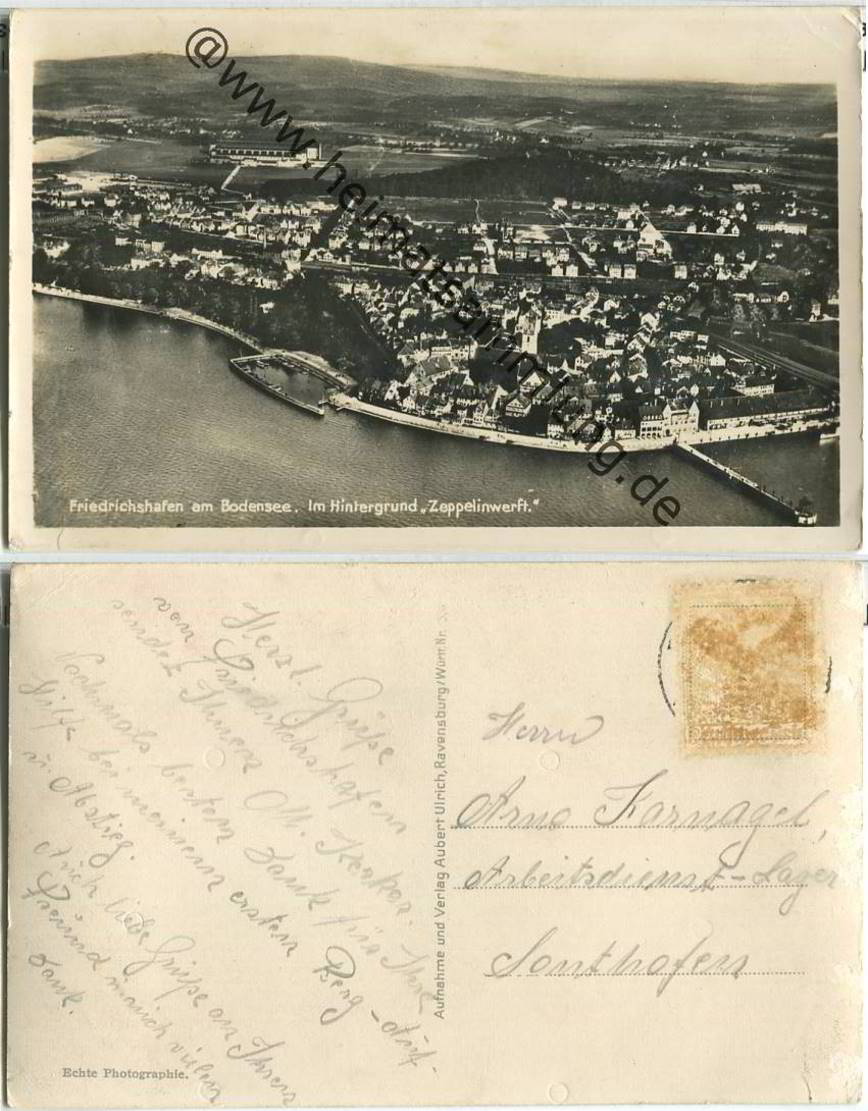 @www.heimatsammlung.de
Friedrichshafen am Bodensee. Im Hintergrund „Zeppelinwerft."
Herzl. Grüße
vom Friedrichshafen
sendet Ihnen M.
Nochmals besten Dank für Ihre
Hilfe bei meinem ersten Berg-Auf-
u. Abstieg.
Auch liebe Grüße an Ihren
Freund und vielen
Dank.
Echte Photographie.
Aufnahme und Verlag Aubert Ulrich, Ravensburg/Württ. Nr.
Herrn
Arno Karnagel,
Arbeitsdienst-Lager
Sonthofen